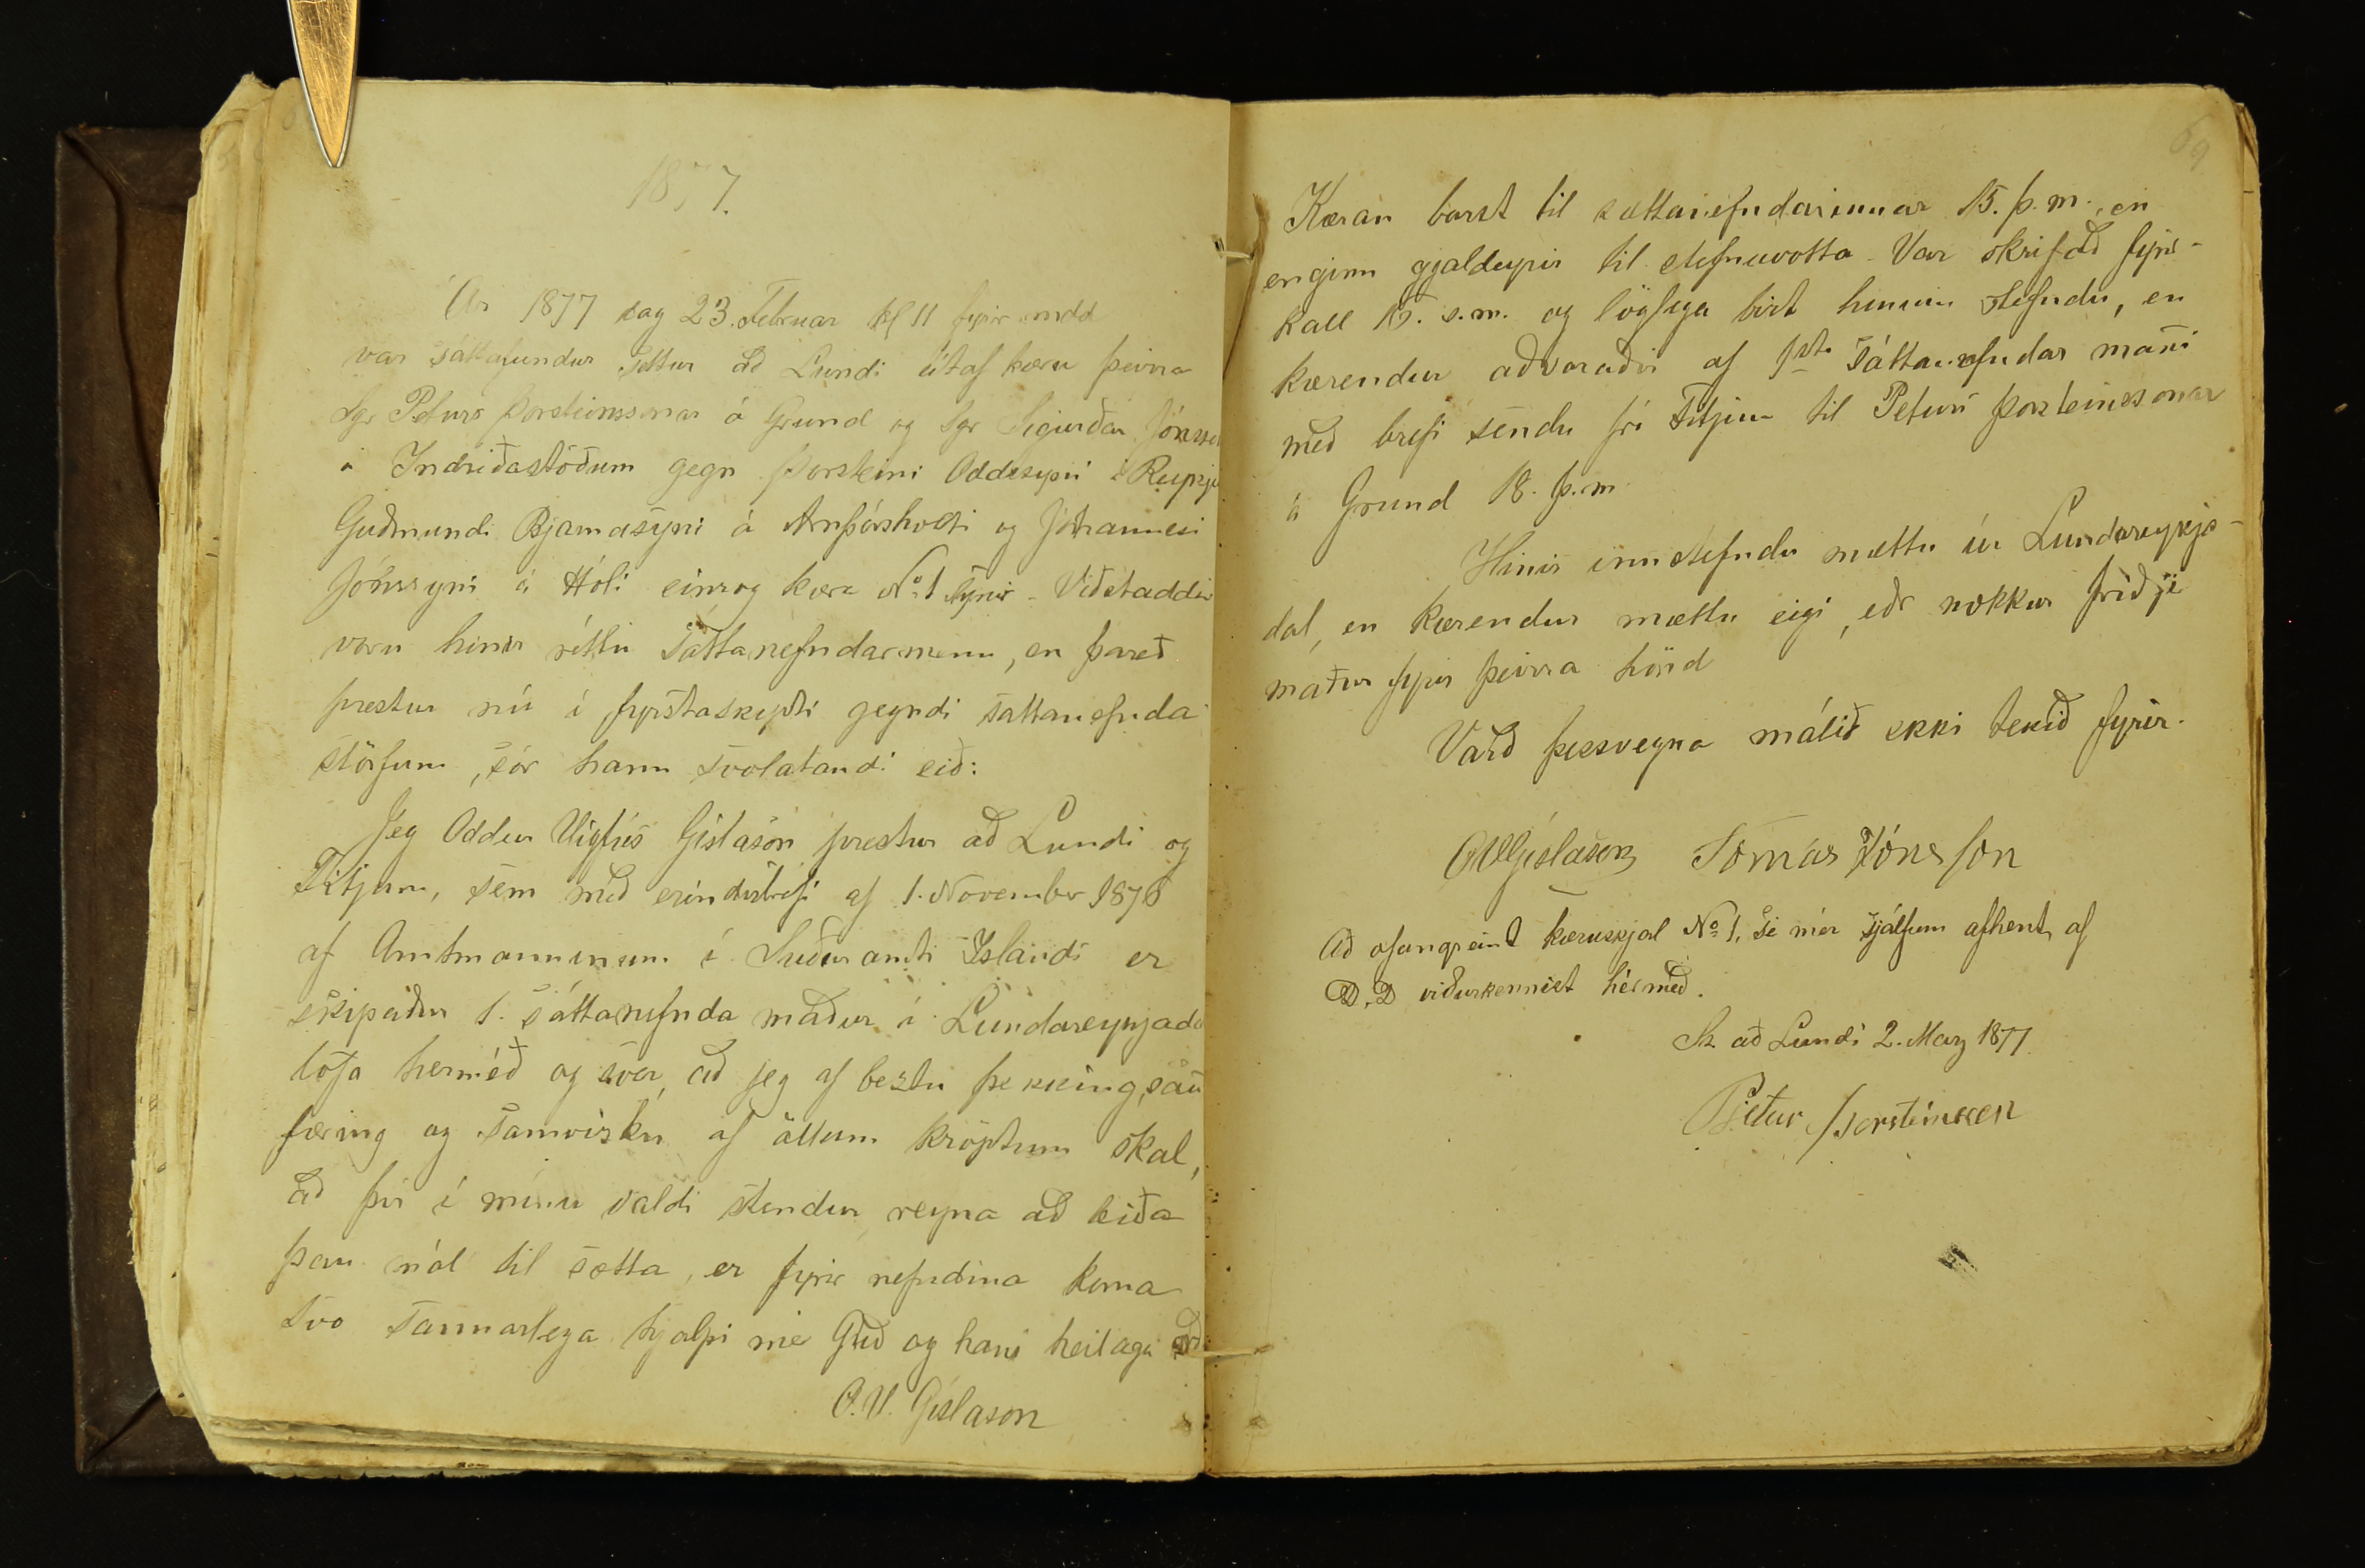 1877.
Ár 1877 dag 23. Februar kl 11 fyrir midd
var sáttafundur settur að Lundi útaf kæru þeirra
Sgr Peturs Þorsteinssonar á Grund og Sgr Sigurðar Jónsso
á Indriðastöðum gegn Þorsteini Oddssyni á Reykju
Guðmundi Bjarnasyni á Arnþórsholti og Jóhannesi
Jónssyni á Hóli einsog kæra No 1 sýnir. Viðstaddir
voru hinir réttu sáttanefndarmenn, en þareð
prestur nú í fyrstaskipti gegndi sáttanefnda
störfum, sór hann svolátandi eið:
Jeg Oddur Vigfús Gíslason prestur að Lundi og
Fitjum, sem með erindisbrefi af 1. November 1876
af Amtmanninum í Suðuramti Íslands er
skipaður 1. sáttanefnda maður í Lundareykjada
lofa hermeð og sver, að jeg af beztu þekking, san
færing og samvizku af öllum kröptum skal,
að því í mínu valdi stendur reyna að leiða
þau mál til sætta, er fyrir nefndina koma
Svo sannarlega hjalpi mer Guð og hans heilaga orð
O.V. Gíslason
69
Kæran barst til sættanefndarinnar 15. þ.m., en
enginn gjaldeyrir til stefnuvotta. Var skrifað fyrir-
kall 15. s.m. og löglega birt hinum stefndu, en
kærendur aðvaraðir af 1sta sáttanefndar manni
með brefi sendu frá Fitjum til Peturs Þorsteinssonar
á Grund 18. þ.m.
Hinir innstefndu mættu úr Lundareykja-
dal, en kærendur mættu eigi, eðr nokkur þriðji
maður fyrir þeirra hönd
Varð þessvegna málið ekki tekið fyrir.
OVGíslason Tomas Jónsson
Að ofangreint kæruskjal No 1, se mér sjálfum afhent af
D.D viðurkennist hérmeð.
St. að Lundi 2. Marz 1877.
Pjetur Þorsteinsson